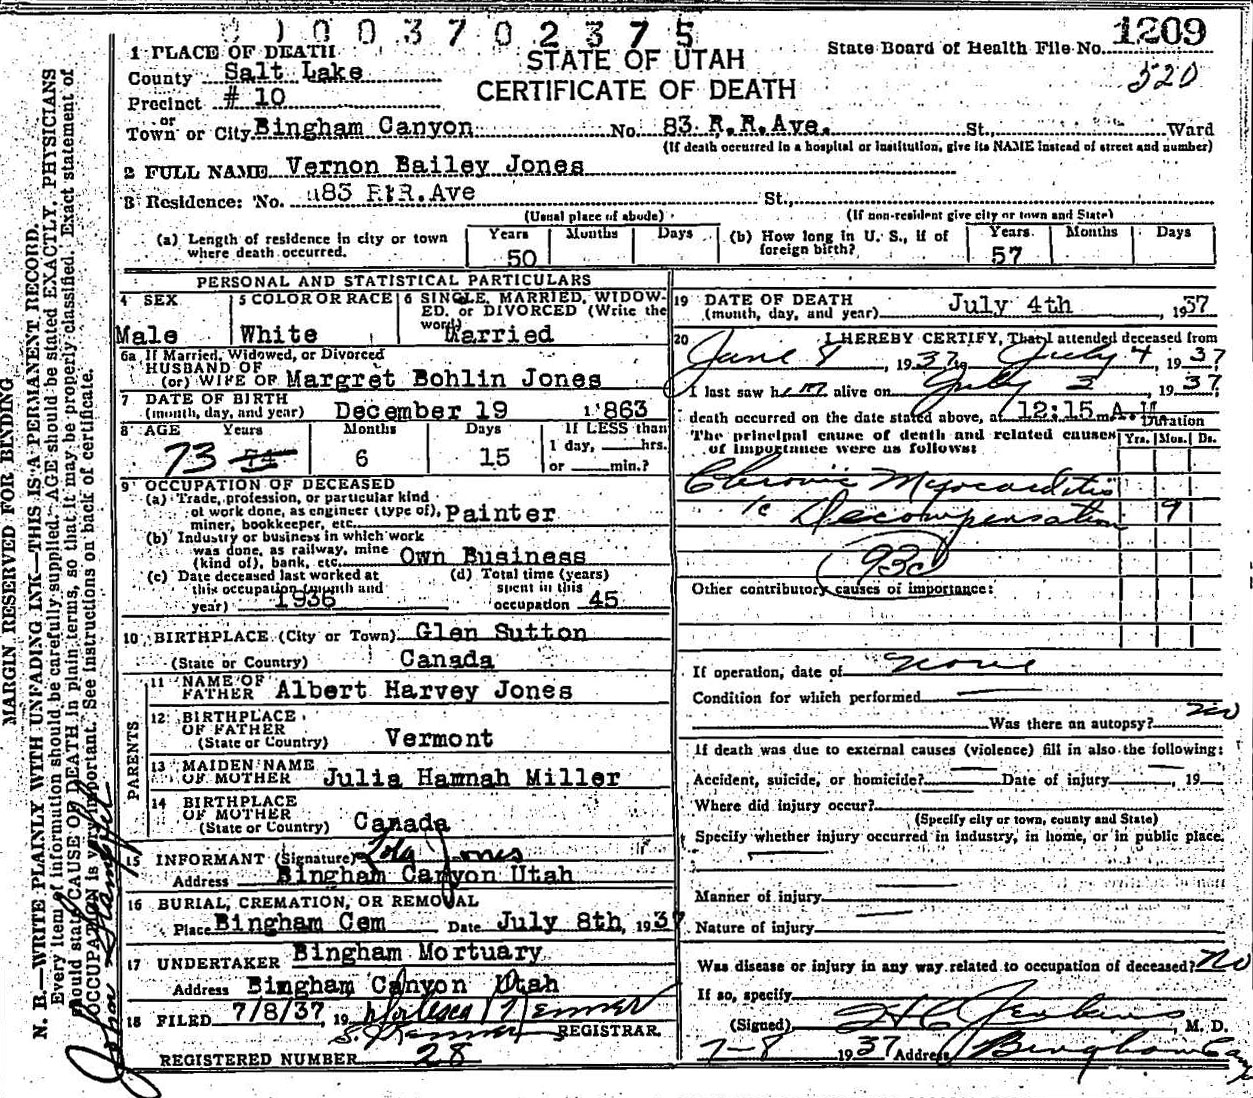 0 1 0 0 3 7 0 2 3 7 5
State Board of Health File No. 1209
520
STATE OF UTAH
CERTIFICATE OF DEATH
1 PLACE OF DEATH
County Salt Lake
Precinct # 10
or
Town or City Bingham Canyon No. 83 R.R.Ave. St., Ward
(If death occurred in a hospital or institution, give its NAME instead of street and number)
2 FULL NAME Vernon Bailey Jones
3 Residence: No. R.Ave St.,
(Usual place of abode) (If non-resident give city or town and State)
(a) Length of residence in city or town where death occurred. Years 50 Months Days
(b) How long in U. S., if of foreign birth? Years 57 Months Days
PERSONAL AND STATISTICAL PARTICULARS
4 SEX Male
5 COLOR OR RACE White
6 SINGLE, MARRIED, WIDOW-
ED, or DIVORCED (Write the
word) Married
6a If Married, Widowed, or Divorced
HUSBAND OF
(or) WIFE OF Margret Bohlin Jones
7 DATE OF BIRTH
(month, day, and year) December 19 1863
8 AGE Years 73 Months 6 Days 15
If LESS than
1 day, hrs.
or min.?
9 OCCUPATION OF DECEASED
(a) Trade, profession, or particular kind
of work done, as engineer (type of),
miner, bookkeeper, etc. Painter
(b) Industry or business in which work
was done, as railway, mine
(kind of), bank, etc. Own Business
(c) Date deceased last worked at
this occupation (month and
year) 1936
(d) Total time (years)
spent in this
occupation 45
10 BIRTHPLACE (City or Town) Glen Sutton
(State or Country) Canada
PARENTS
11 NAME OF
FATHER Albert Harvey Jones
12 BIRTHPLACE
OF FATHER
(State or Country) Vermont
13 MAIDEN NAME
OF MOTHER Julia Hamnah Miller
14 BIRTHPLACE
OF MOTHER
(State or Country) Canada
15 INFORMANT (Signature) Lola Jones
Address Bingham Canyon Utah
16 BURIAL, CREMATION, OR REMOVAL
Place Bingham Cem Date July 8th, 1937
17 UNDERTAKER Bingham Mortuary
Address Bingham Canyon Utah
18 FILED 7/8/37, 19
REGISTRAR.
REGISTERED NUMBER 28
19 DATE OF DEATH
(month, day, and year) July 4th, 1937
20 I HEREBY CERTIFY, That I attended deceased from
June 8, 1937, to July 4, 1937,
I last saw him alive on July 3, 1937,
death occurred on the date stated above, at 12:15 m. A.M
The principal cause of death and related causes
of importance were as follows:
Duration
Yrs. Mos. Ds.
Chronic Myocarditis
Decompensation 9
93c
Other contributory causes of importance:
If operation, date of none
Condition for which performed
Was there an autopsy? no
If death was due to external causes (violence) fill in also the following:
Accident, suicide, or homicide? Date of injury, 19
Where did injury occur?
(Specify city or town, county and State)
Specify whether injury occurred in industry, in home, or in public place.
Manner of injury
Nature of injury
Was disease or injury in any way related to occupation of deceased? No
If so, specify
(Signed) H C Jenkins, M. D.
7-8 1937 Address Bingham Can
MARGIN RESERVED FOR BINDING
N. B.—WRITE PLAINLY WITH UNFADING INK—THIS IS A PERMANENT RECORD.
Every item of information should be carefully supplied. AGE should be stated EXACTLY, PHYSICIANS
should state CAUSE OF DEATH in plain terms, so that it may be properly classified. Exact statement of
OCCUPATION is very important. See instructions on back of certificate.